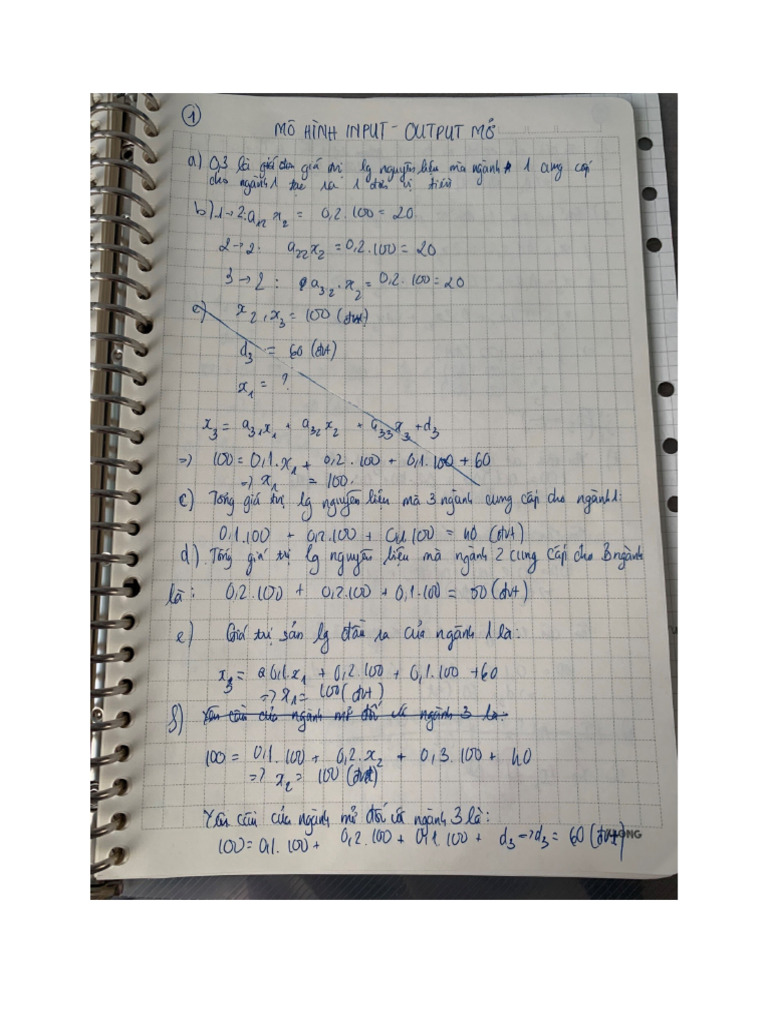 1
MÔ HÌNH INPUT - OUTPUT MỞ
a) 0,3 là giá trị lg nguyên liệu mà ngành 1 cung cấp
cho ngành 1 ra 1 đơn vị tiền
b) 1→2: a12 x2 = 0,2.100 = 20
2→2: a22 x2 = 0,2.100 = 20
3→2: a32.x2 = 0,2.100 = 20
e) x2, x3 = 100 (đvt)
d3 = 60 (đvt)
x1 = ?
x3 = a31x1 + a32x2 + a33x3 + d3
=> 100 = 0,1.x1 + 0,2.100 + 0,1.100 + 60
=> x1 = 100.
c) Tổng giá trị lg nguyên liệu mà 3 ngành cung cấp cho ngành 1:
0,1.100 + 0,2.100 + 0,1.100 = 40 (đvt)
d) Tổng giá trị lg nguyên liệu mà ngành 2 cung cấp cho 3 ngành
là: 0,2.100 + 0,2.100 + 0,1.100 = 50 (đvt)
e) Giá trị sản lg đầu ra của ngành 1 là:
x3 = 0,1.x1 + 0,2.100 + 0,1.100 + 60
=> x1 = 100 (đvt)
f) Yêu cầu của ngành mở đối với ngành 3 là:
100 = 0,1.100 + 0,2.x2 + 0,3.100 + 40
=> x2 = 100 (đvt)
Yêu cầu của ngành mở đối với ngành 3 là:
100 = 0,1.100 + 0,2.100 + 0,1.100 + d3 => d3 = 60 (đvt)